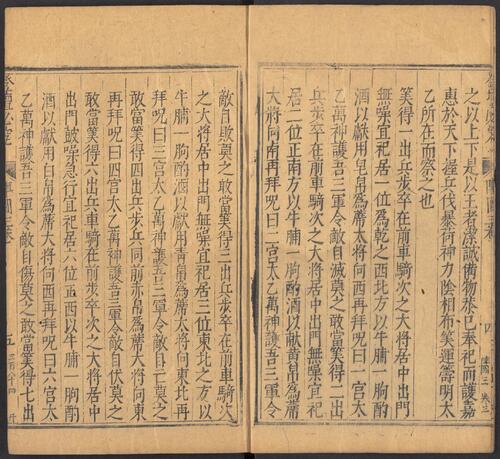 之以上下是以王者潔誠備物恭已奉祀而護嘉
惠於天下握兵伐暴荷神力陰相布筭運籌明太
乙所在而祭之也
筭得一出兵步卒在前車騎次之大將居中出門
無噪宜祀居一位為乾之西北方以牛脯一朐酌
酒以獻用皂帛為蓆大將向西北再拜呪曰一宮太
乙萬神護吾三軍令敵自滅莫之敢當筭得二出
兵步卒在前車騎次之大將居中出門無噪宜祀
居二位正南方以牛脯一朐酌酒以獻用帛為蓆
大將向南再拜呪曰二宮太乙萬神護吾三軍令
敵自敗莫之敢當筭得三出兵步卒在前車騎次
之大將居中出門無噪宜祀居三位東北之方以
牛脯一朐酌酒以獻用青帛為蓆大將向東北再
拜呪曰三宮太乙萬神護吾三軍令敵自亡莫之
敢當筭得四出兵步卒同前赤帛為蓆大將向東
再拜呪曰四宮太乙萬神護吾三軍令敵自伏莫之
敢當筭得六出兵車騎在前步卒次之大將居中
出門鼓噪急行宜祀居六位正西以牛脯一朐酌
酒以獻用白帛為蓆大將向西再拜呪曰六宮太
乙萬神護吾三軍令敵自傷莫之敢當筭得七出
五